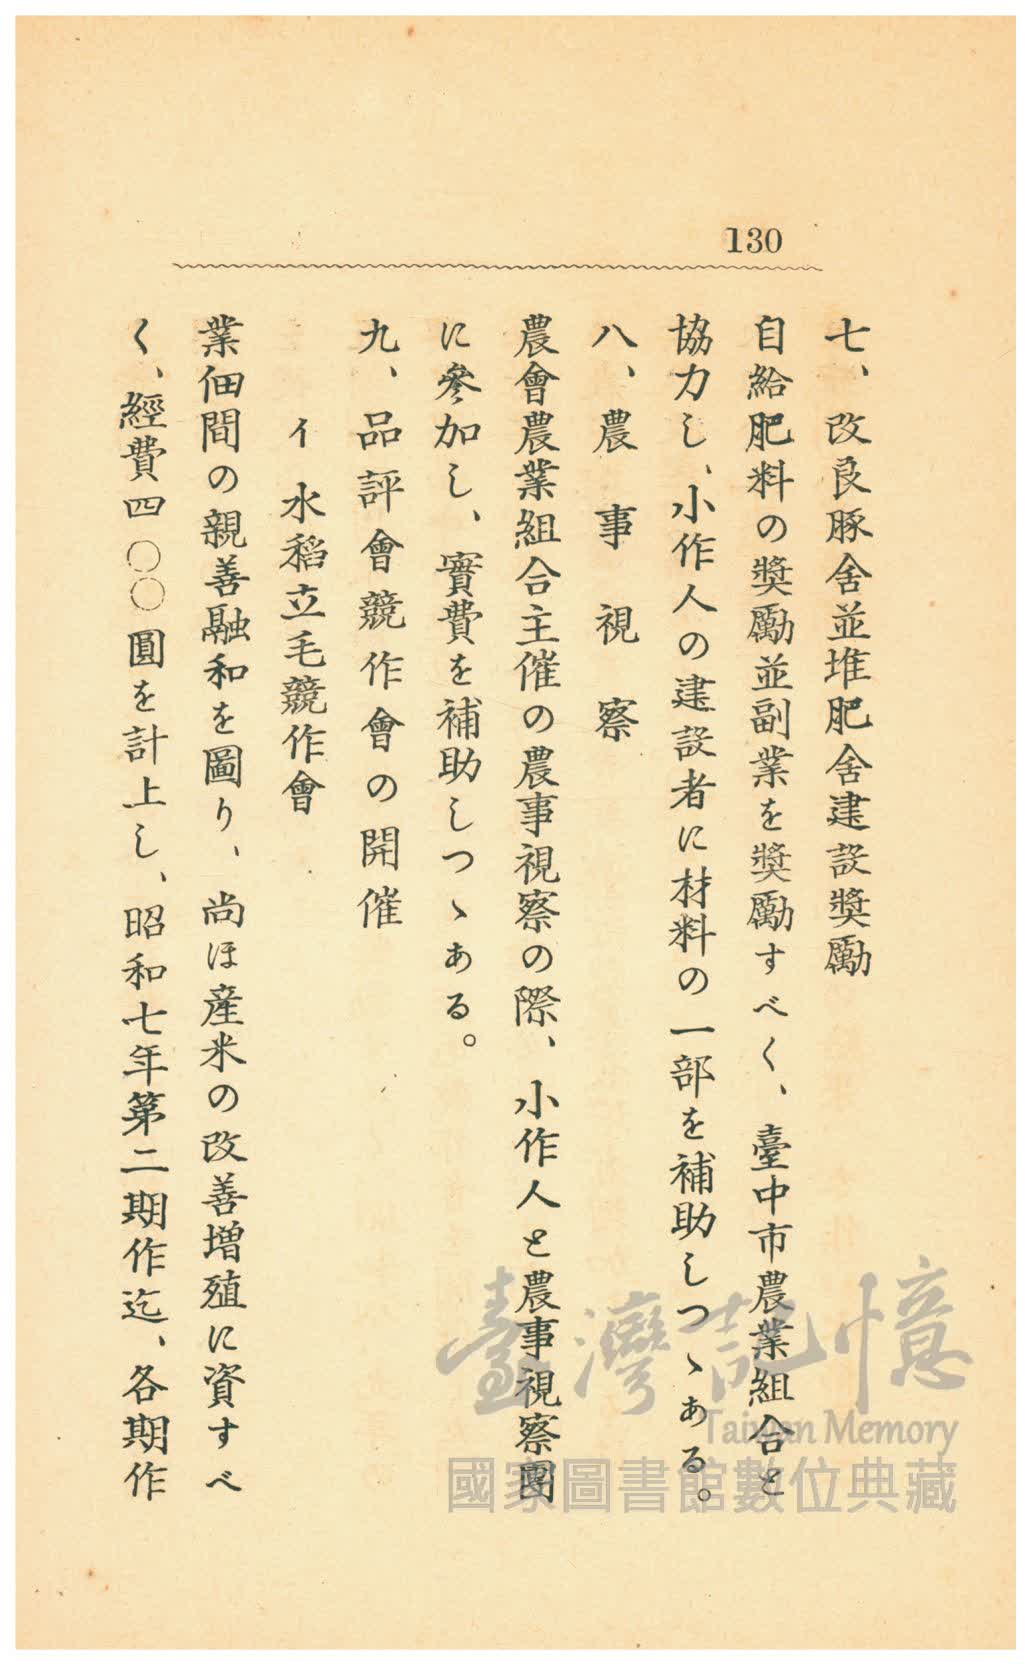 130
七、改良豚舍並堆肥舍建設獎勵
自給肥料の獎勵並副業を獎勵すべく、臺中市農業組合と
協力し、小作人の建設者に材料の一部を補助しつゝある。
八、農事視察
農會農業組合主催の農事視察の際、小作人と農事視察團
に參加し、實費を補助しつゝある。
九、品評會競作會の開催
イ 水稻立毛競作會
業佃間の親善融和を圖り、尚ほ產米の改善增殖に資すべ
く、經費四〇〇圓を計上し、昭和七年第二期作迄、各期作
臺灣記憶
Taiwan Memory
國家圖書館數位典藏